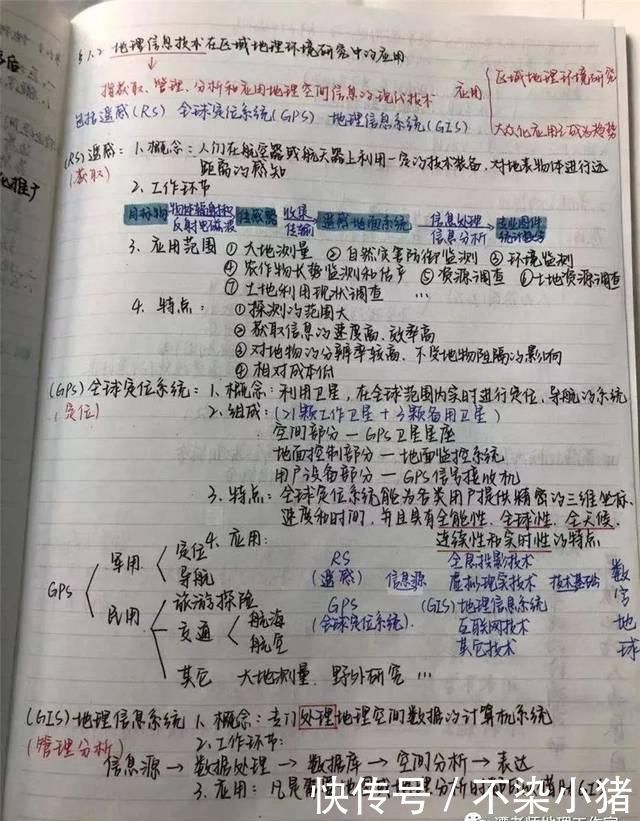 §1.2 地理信息技术在区域地理环境研究中的应用
指获取、管理、分析和应用地理空间信息的现代技术 应用 区域地理环境研究
包括遥感(RS) 全球定位系统(GPS) 地理信息系统(GIS) 大众化应用已成为趋势
(RS)遥感: 1. 概念: 人们在航空器或航天器上利用一定的技术装备, 对地表物体进行远
(获取) 距离的感知
2. 工作环节
目标物 反射电磁波 传感器 收集 传输 遥感地面系统 信息处理 信息分析 专业图件 统计数字
3. 应用范围 ① 大地测量 ② 自然灾害防御监测 ③ 环境监测
④ 农作物长势监测和估产 ⑤ 资源调查 ⑥ 土地资源调查
⑦ 土地利用现状调查 …
4. 特点: ① 探测的范围大
② 获取信息的速度高、效率高
③ 对地物的分辨率较高、不受地物阻隔的影响
④ 相对成本低
(GPS)全球定位系统: 1. 概念: 利用卫星, 在全球范围内实时进行定位、导航的系统
(定位) 2. 组成: (21颗工作卫星 + 3颗备用卫星)
空间部分 — GPS卫星星座
地面控制部分 — 地面监控系统
用户设备部分 — GPS信号接收机
3. 特点: 全球定位系统能为各类用户提供精密的三维坐标、
速度和时间, 并且具有全能性、全球性、全天候、
连续性和实时性的特点
4. 应用:
GPS 军用 定位 导航
民用 旅游探险
交通 航海 航空
其它 大地测量、野外研究 …
RS (遥感) 信息源 全息投影技术
虚拟现实技术 技术基础 数字地球
GPS (全球定位系统) (GIS)地理信息系统
互联网技术
其它技术
(GIS)地理信息系统 1. 概念: 专门处理地理空间数据的计算机系统
(管理分析) 2. 工作环节:
信息源 → 数据处理 → 数据库 → 空间分析 → 表达
3. 应用: 凡是
快传号 / 不染小猪